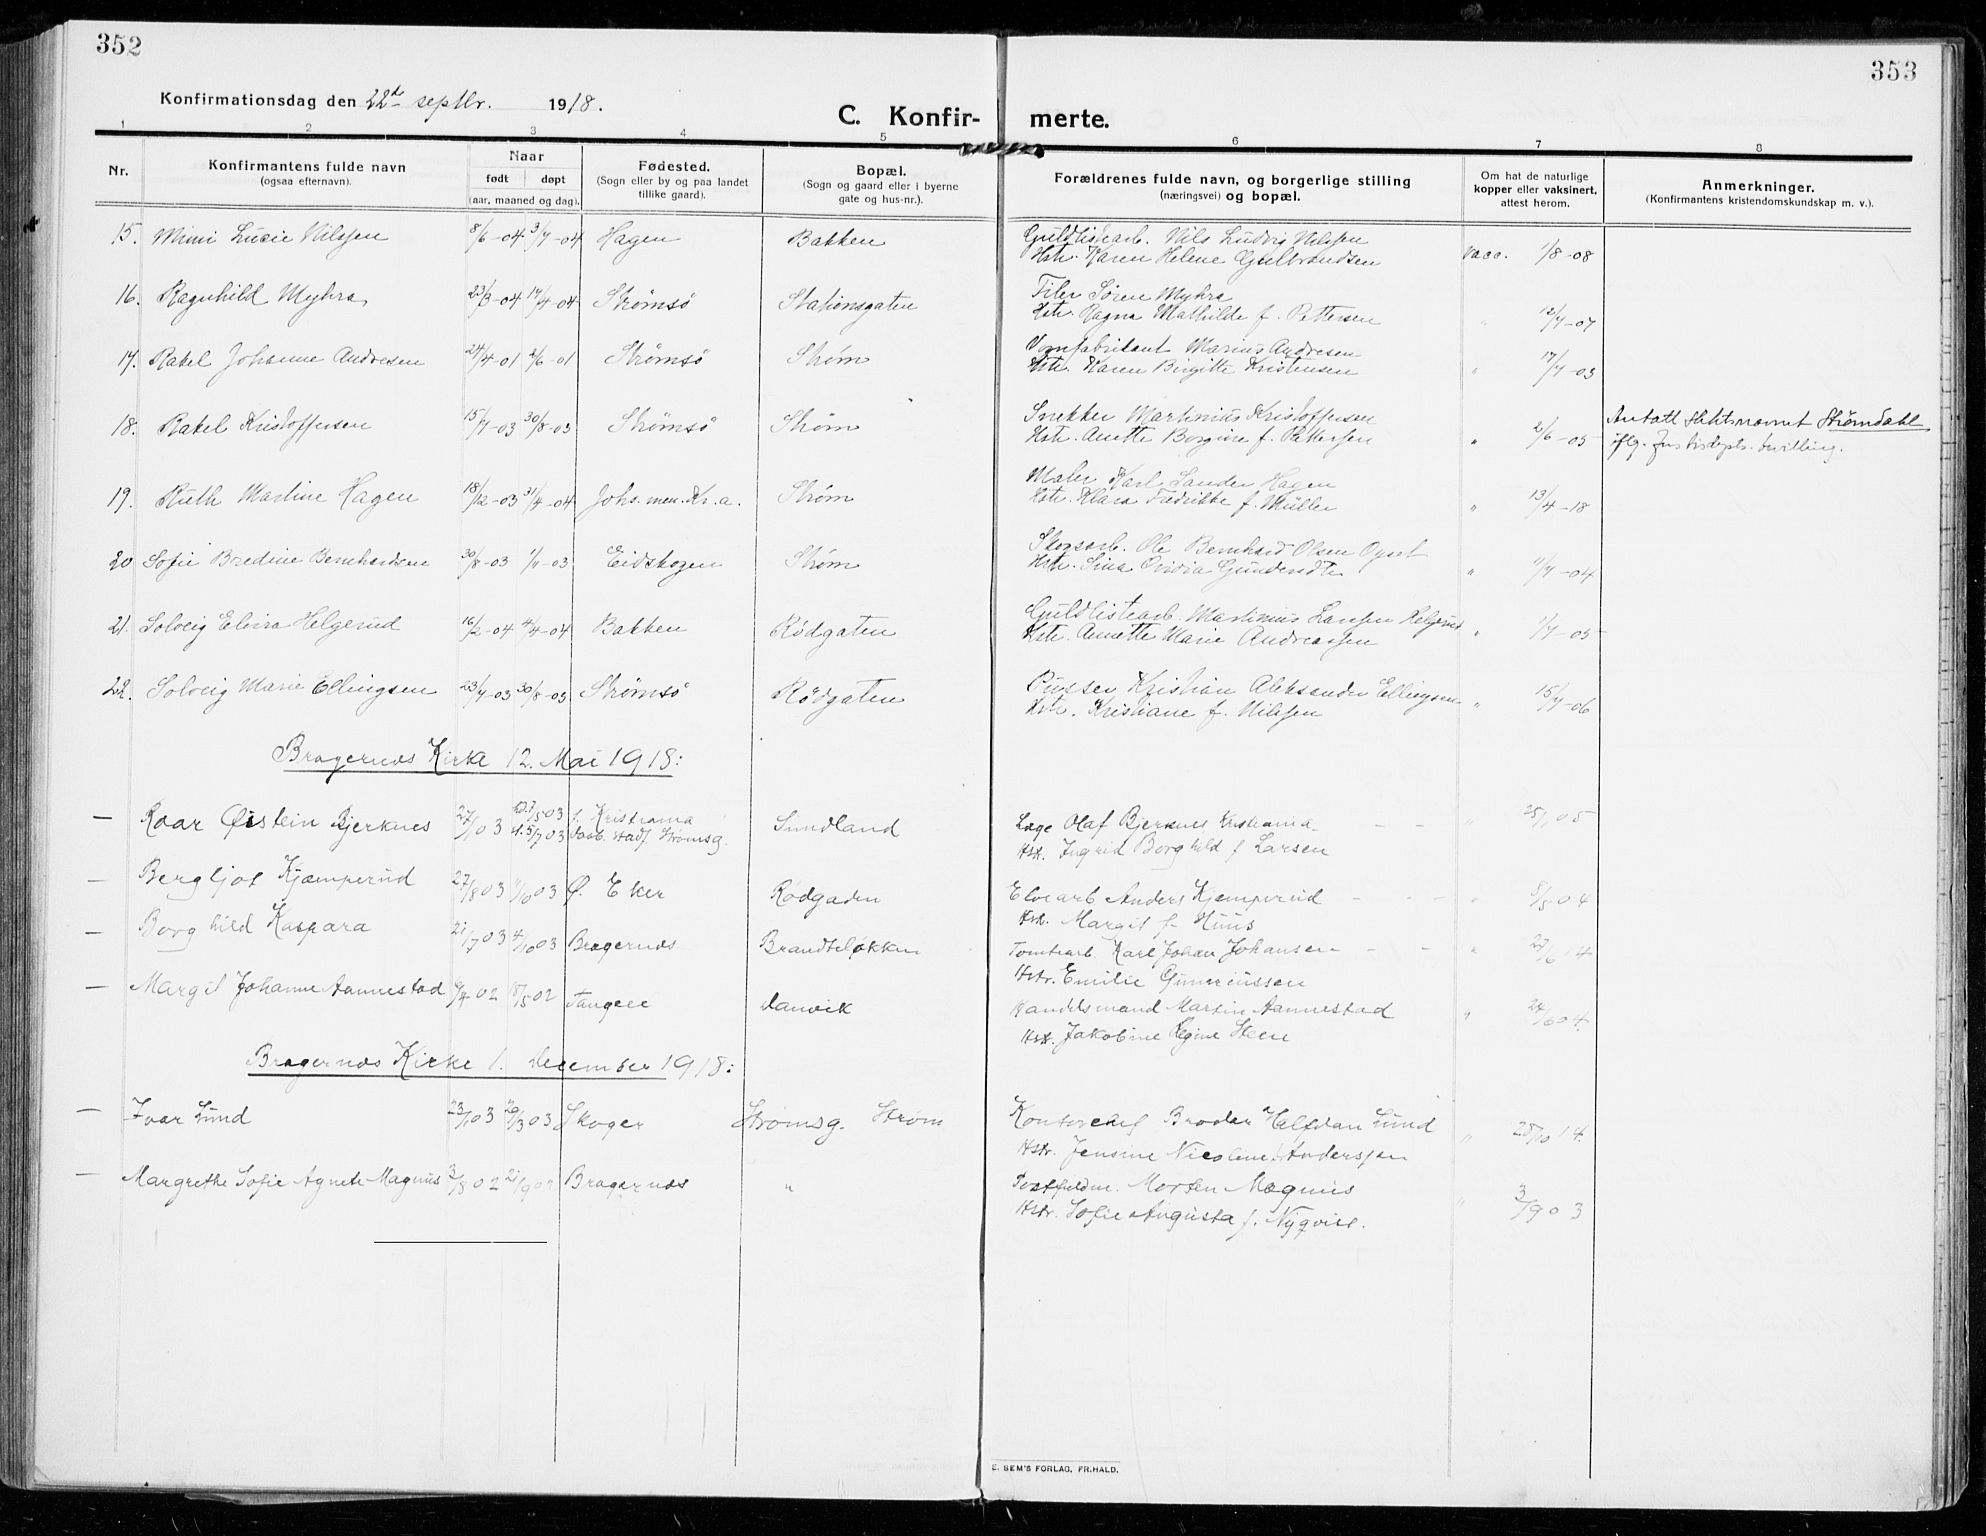 352
353
Konfirmationsdag den 22de septbr. 1918.
C. Konfir- merte.
1 2 3 4 5 6 7 8
Nr.
Konfirmantens fulde navn
(ogsaa efternavn).
Naar
født døpt
(aar, maaned og dag).
Fødested.
(Sogn eller by og paa landet
tillike gaard).
Bopæl.
(Sogn og gaard eller i byerne
gate og hus-nr.).
Forældrenes fulde navn, og borgerlige stilling
(næringsvei) og bopæl.
Om hat de naturlige
kopper eller vaksinert,
attest herom.
Anmerkninger.
(Konfirmantens kristendomskundskap m. v.).
15. Mimi Lucie Nilssen 8/6-04 3/7-04 Hagen Bakken Guldlistearb. Nils Ludvig Nilssen vacc. 1/8-08
Hstr. Karen Helene Gulbrandsen
16. Ragnhild Myhra 23/3-04 17/4-04 Strømsø Stationsgaten Filer Søren Myhra
Hstr. Ragna Mathilde f. Pettersen " 12/7-07
17. Rakel Johanne Andresen 24/4-01 2/6-01 Strømsø Strøm Vognfabrikant Marius Andresen
Hstr. Karen Birgitte Kristensen " 17/7-03
18. Rakel Kristoffersen 15/7-03 30/8-03 Strømsø Strøm Snekker Martinius Kristoffersen
Hstr. Anette Borgine f. Pettersen " 2/6-05 Antatt slektsnavnet Strømdahl
iflg. Justisdepts. bevilling.
19. Ruth Martine Hagen 18/12-03 31/4-04 Johs. men. Kr.a. Strøm Maler Karl Sander Hagen
Hstr. Klara Fredrikke f. Müller " 13/4-18
20 Sofie Bredine Bernhardsen 30/8-03 1/11-03 Eidskogen Strøm Skogsarb. Ole Bernhard Olsen Opset
Hstr. Lina Ovidia Gundersdtr. " 11/7-04
21. Solveig Elvira Helgerud 16/2-04 4/4-04 Bakken Rødgaten Guldlistearb. Martinius Hansen Helgerud
Hstr. Annette Marie Andreassen " 1/7-05
22. Solveig Marie Ellingsen 23/7-03 30/8-03 Strømsø Rødgaten Pusser Kristian Aleksander Ellingsen
Hstr. Kristiane f. Nilssen " 15/7-06
Bragernes Kirke 12. Mai 1918:
— Roar Øistein Bjerknes 27/1 03 27/5 03 f. Kristiania Sundland Læge Olaf Bjerknes Kristiania — — " 25/1 05
5/7 03 daab. stadf. Strømsg. Hstr. Ingrid Borghild f Larsen
— Bergljot Kjæmperud 27/8 03 11/10 03 Ø. Eker Rødgaden Elvearb Anders Kjemperud — — — " 5/5 04
Hstr. Margit f. Huus
— Borghild Kaspara 21/7 03 4/10 03 Bragernes Brandteløkken Tomtearb. Karl Johan Johansen — — " 27/6 14
Hstr. Emilie Gunneriussen
— Margit Johanne Aannestad 9/4 02 18/5 02 Tangen Danvik Handelsmand Martin Aannestad " 24/6 04.
Hstr. Jakobine Regine Steen
Bragernes Kirke 1. December 1918:
— Ivar Lund 23/1 03 29/3 03 Skoger Strømsg. Strøm Kontorchef Broder Halfdan Lund
Hstr. Jensine Nicoline Anderssen " 28/10 14.
— Margrethe Sofie Agnete Magnus 3/8 02 21/9 02 Bragernes " Postfuldm. Morten Magnus
Hstr. Sofie Augusta f. Nyqvist. " 3/9 03
E. SEM'S FORLAG, FR.HALD.